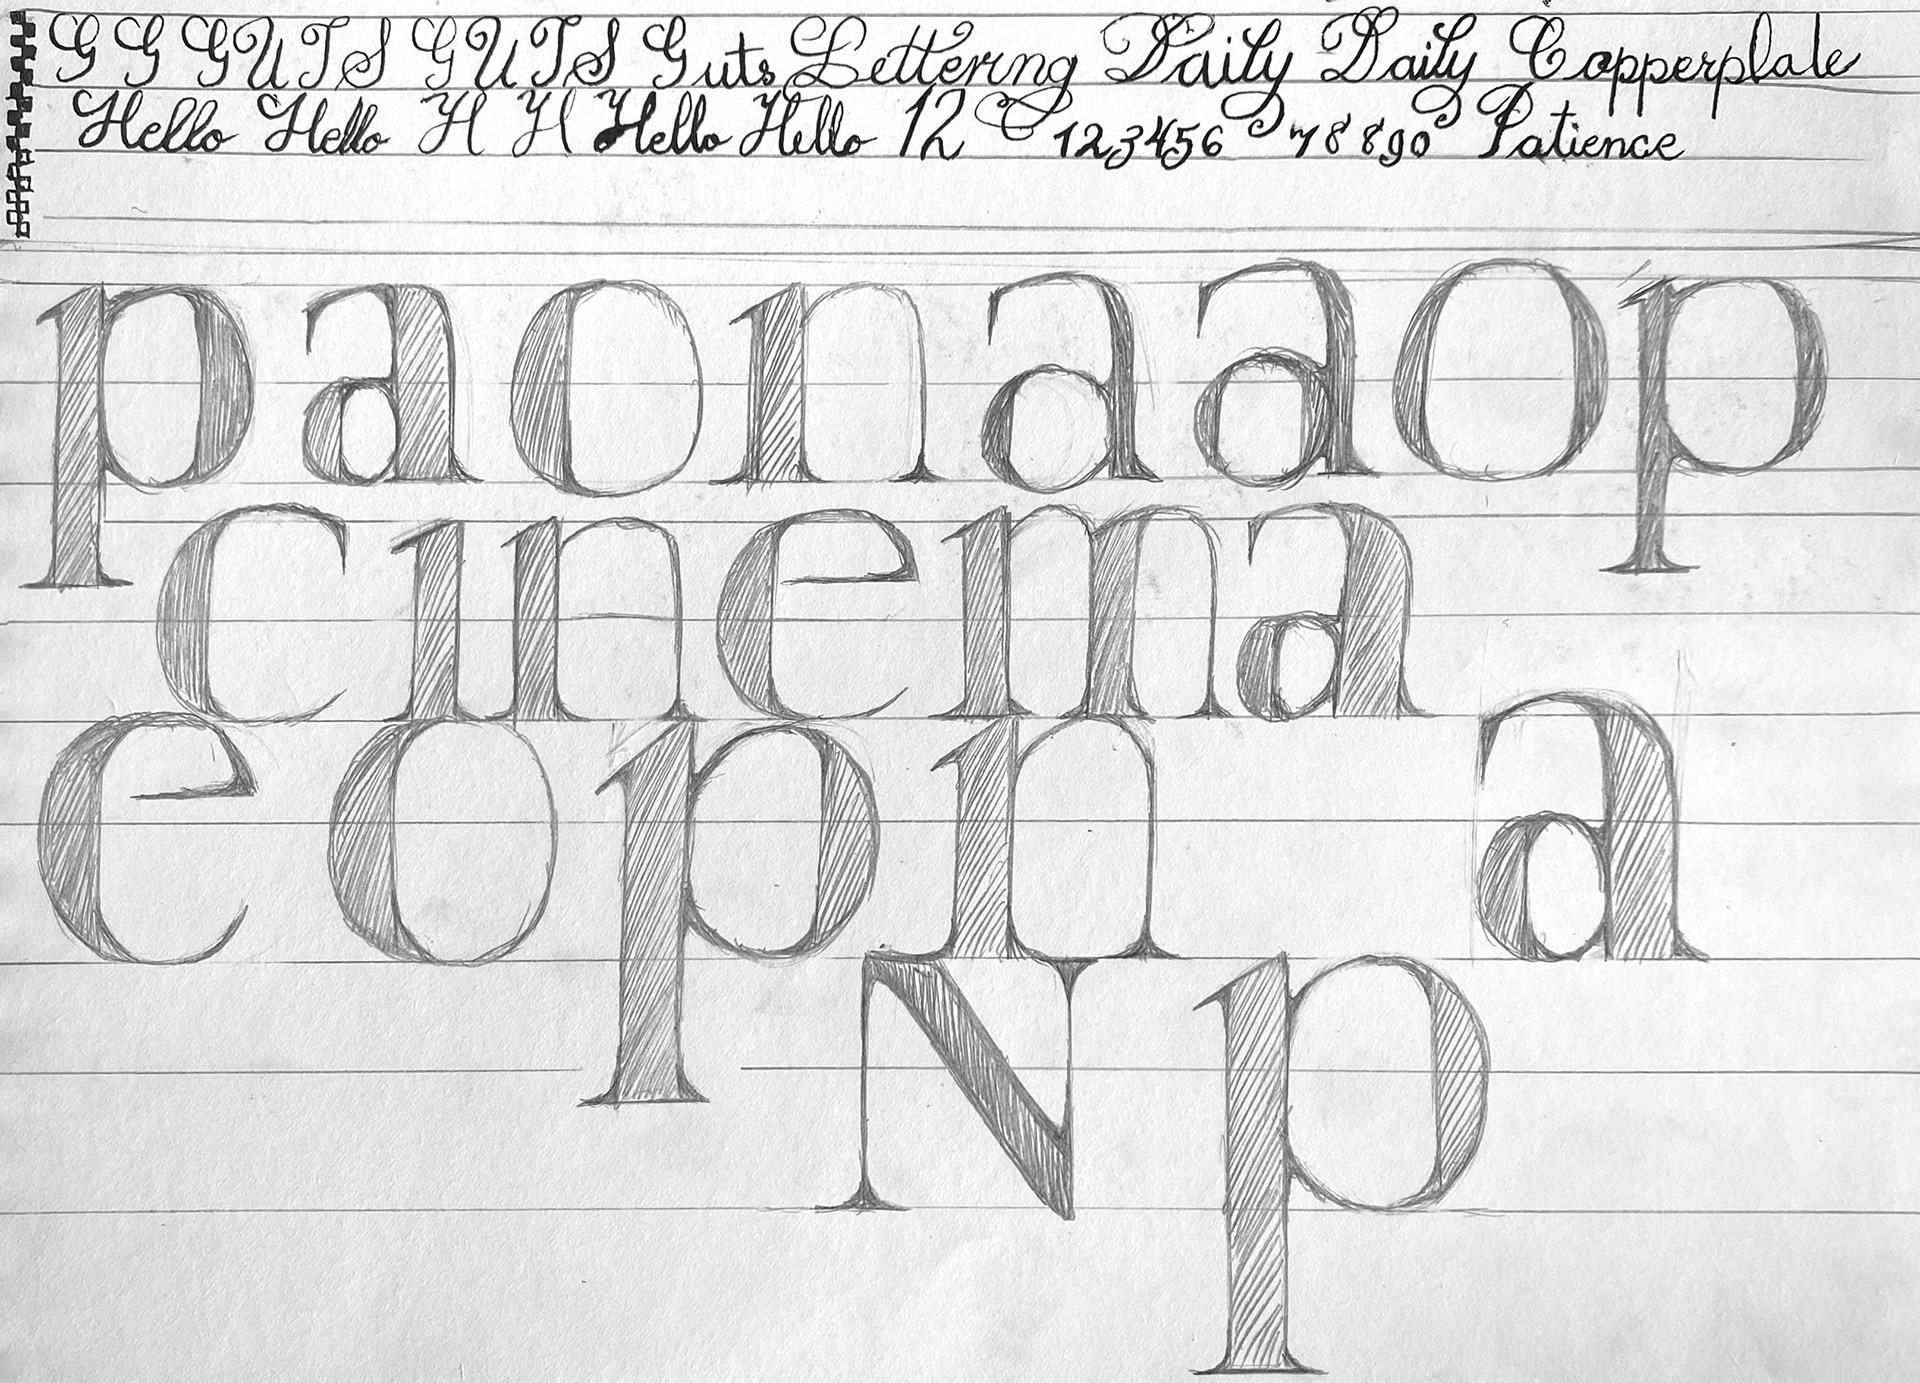 G G GUTS GUTS Guts Lettering Daily Daily Copperplate
Hello Hello H H Hello Hello 12 C 123456 78 8 90 Patience
paonaaop
cinema
eopn a
Np